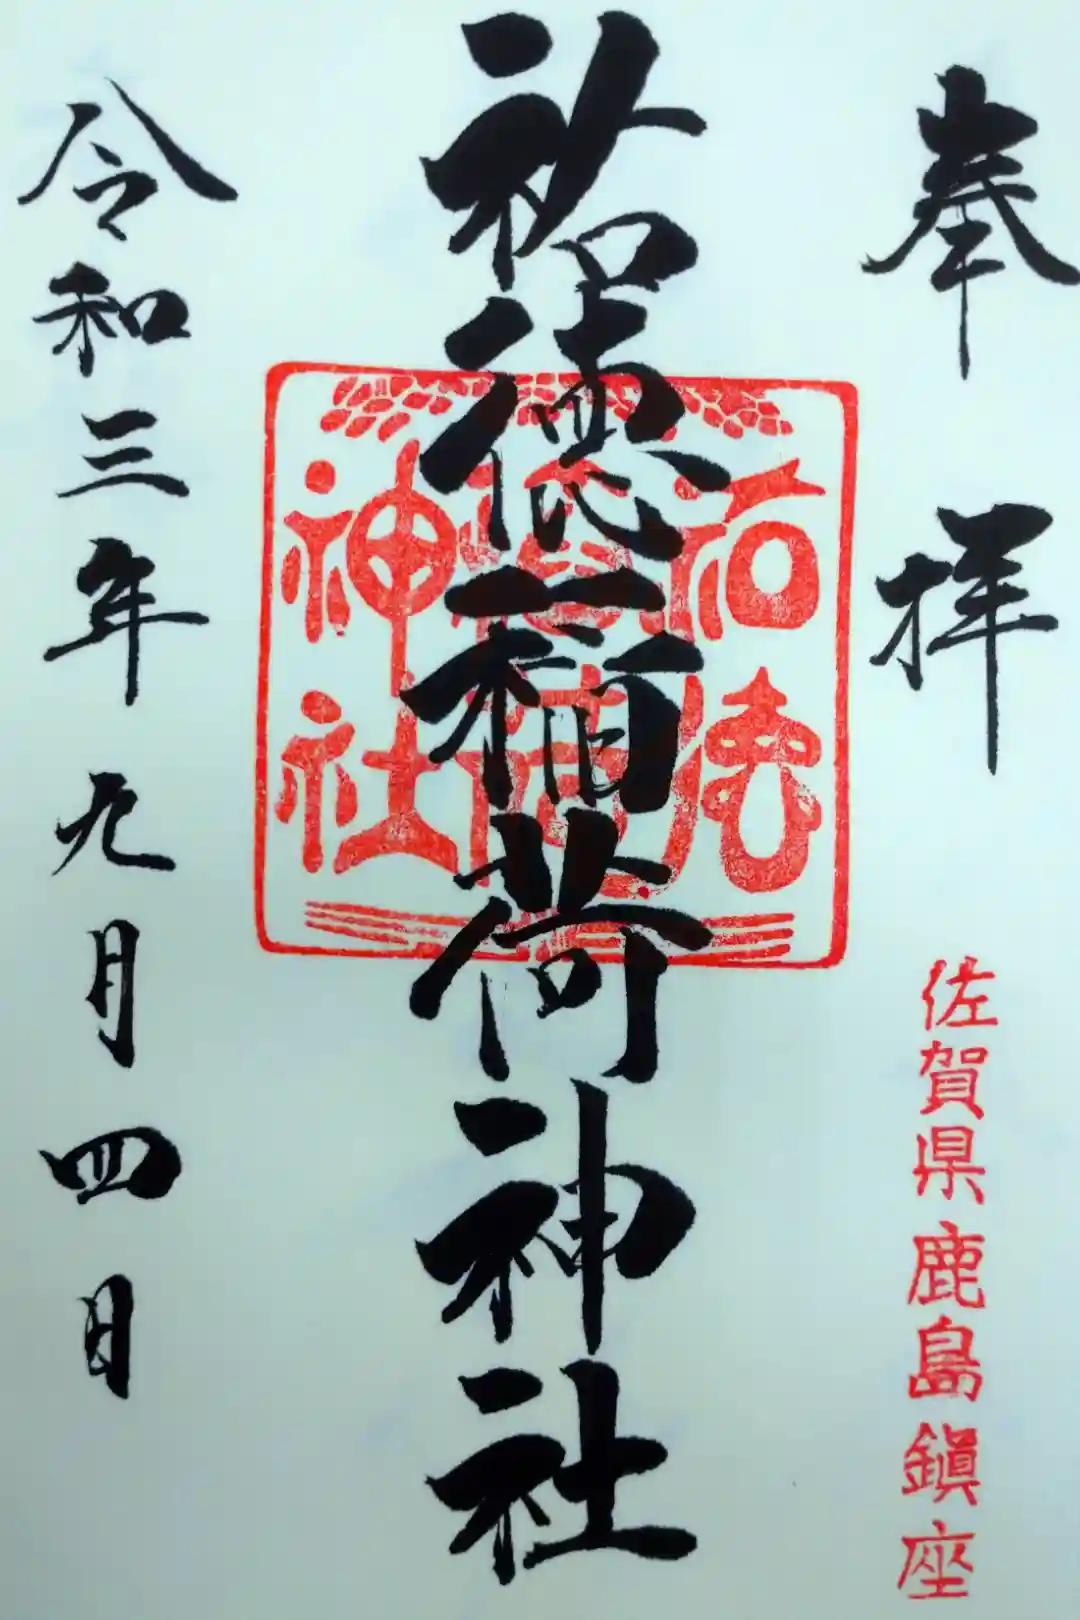 奉拝
佐賀県鹿島鎮座
祐徳稲荷神社
祐徳稲荷神社
令和三年九月四日